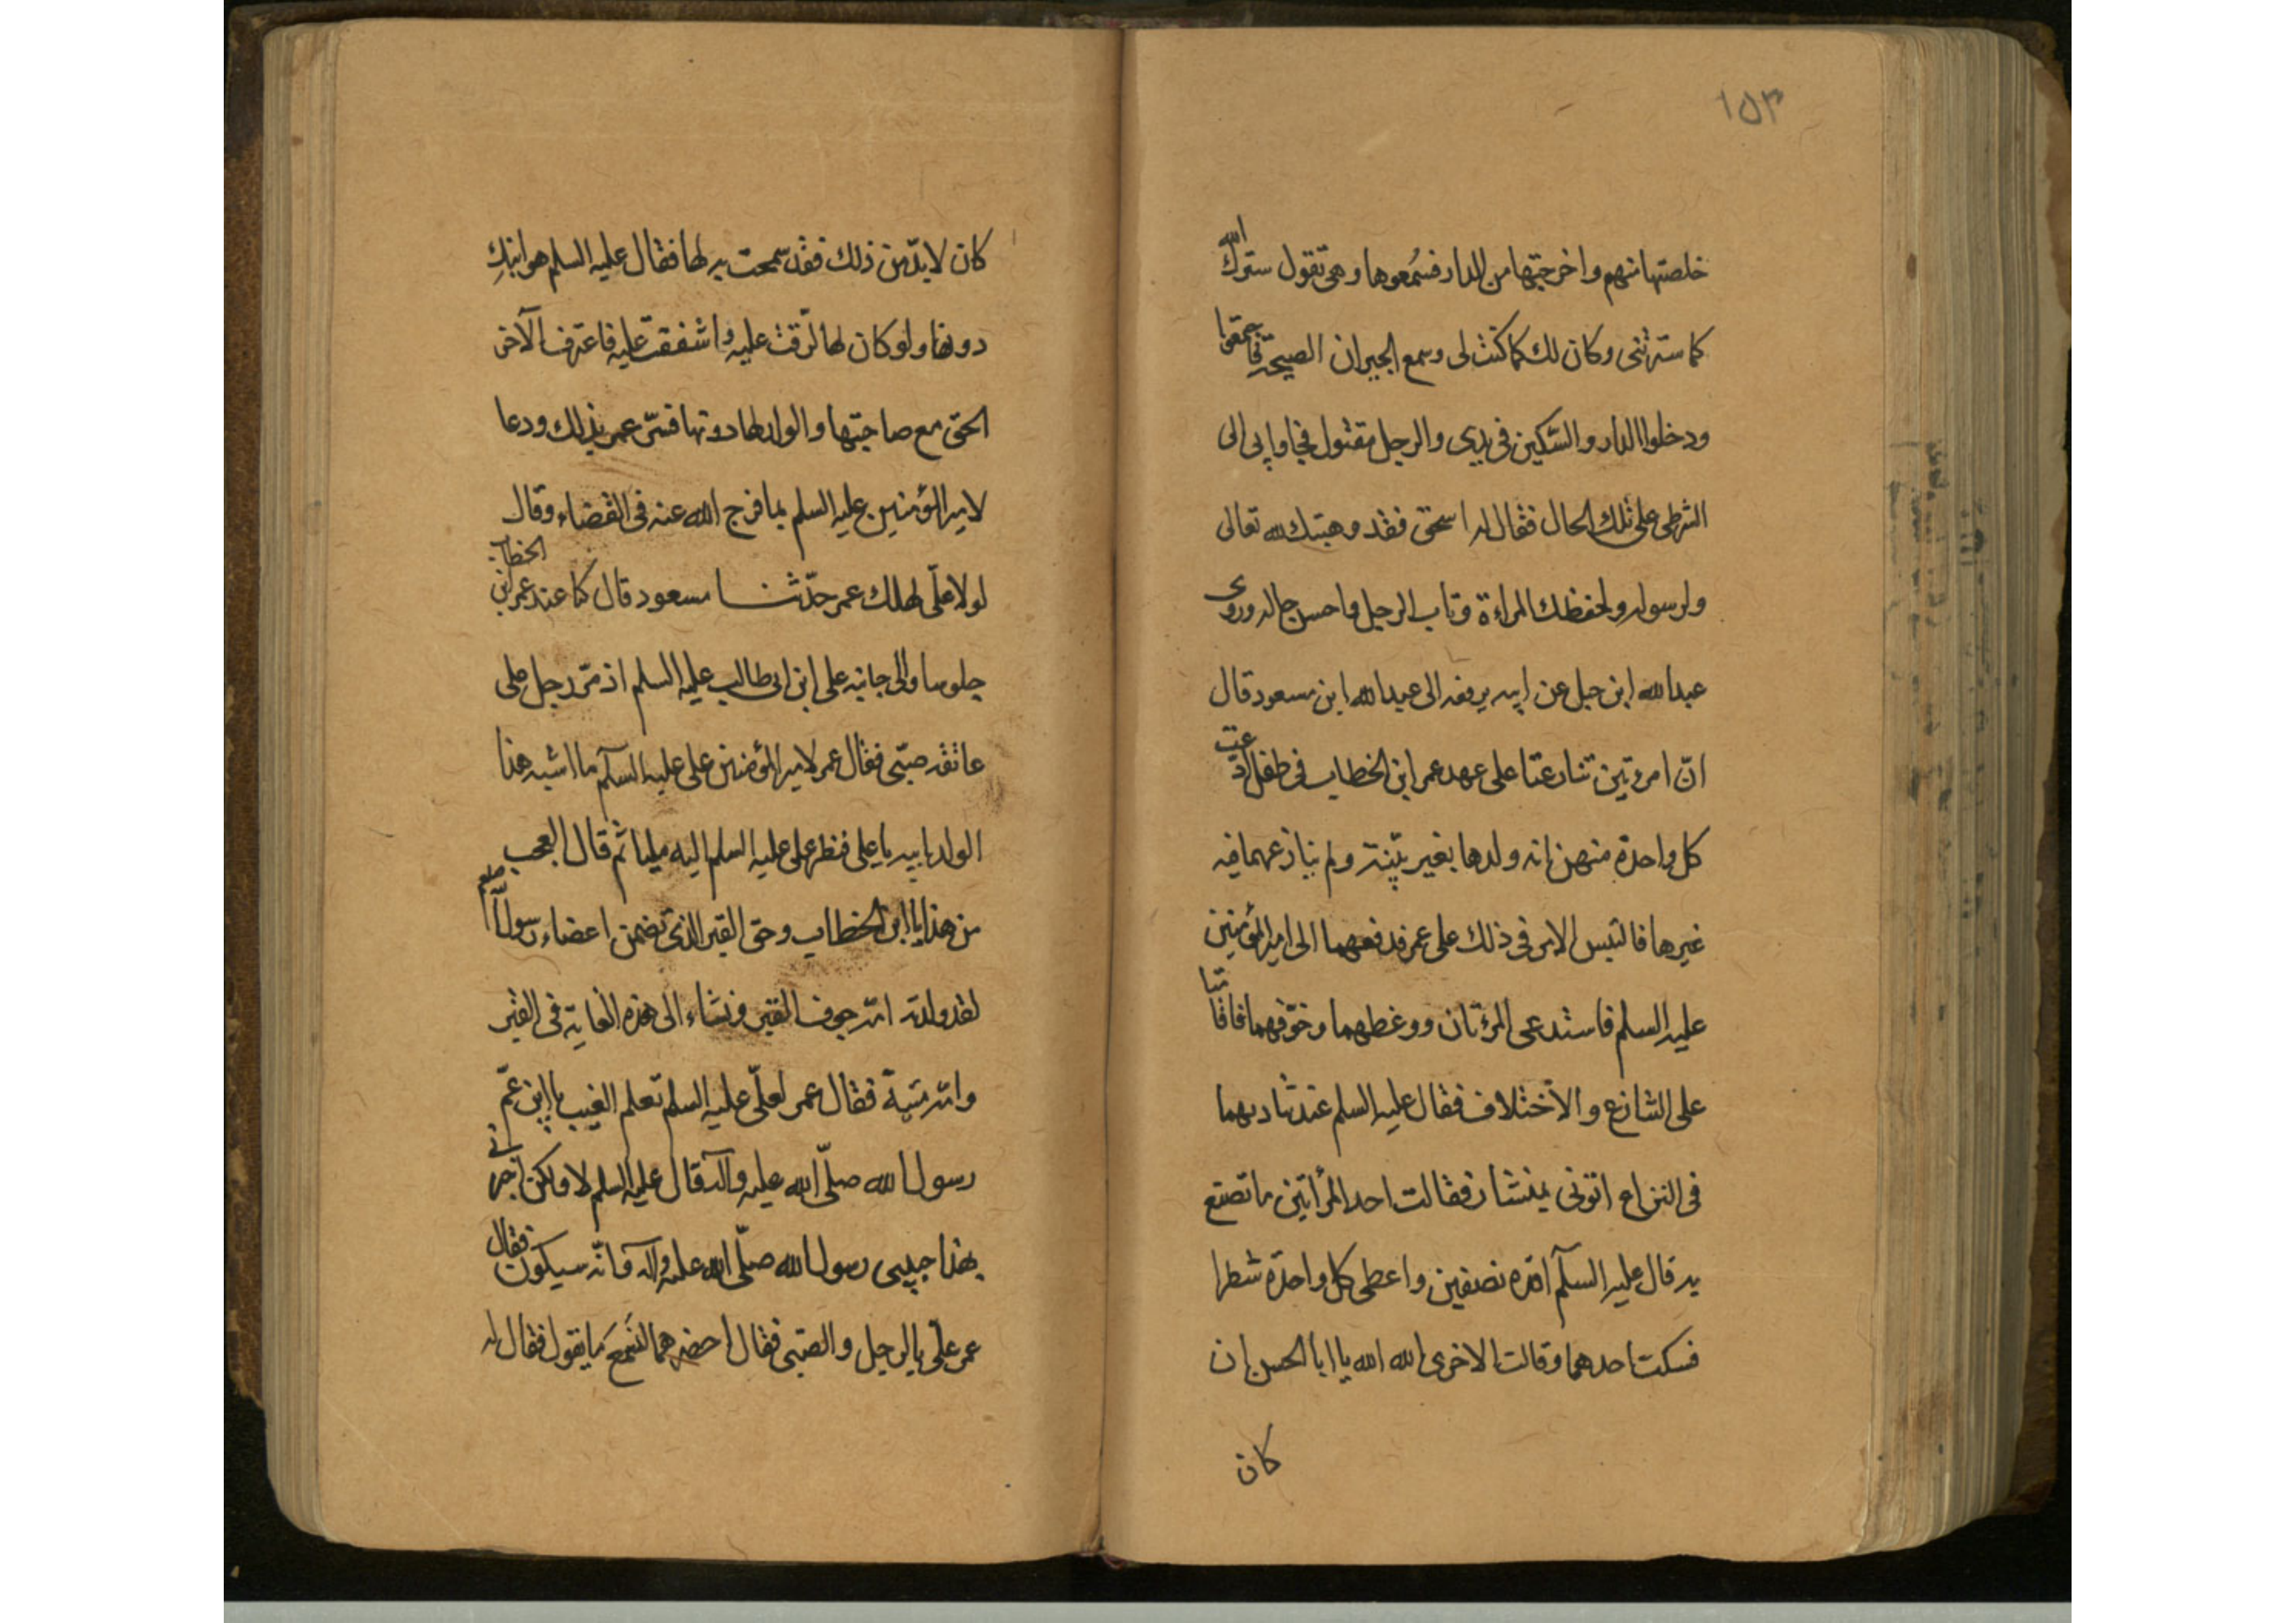 ١٥٣
خلصتها منهم واخرجتها من الدار فسمعوها وهی تقول سترك الله
كما سترتنی وكان لك كما كنت لی وسمع الجيران الصيحة فاجتمعوا
ودخلوا الدار والسّكين فی يدی والرجل مقتول فجاوا بی الی
الشرطی علی تلك الحال فقال له اسحق فقد وهبتك لله تعالی
ولرسوله ولحفظك المراءة وتاب الرجل واحسن حاله وروی
عبدالله ابن جبل عن ابيه يرفعه الی عبدالله ابن مسعود قال
انّ امرءتين تنازعتا علی عهد عمر ابن الخطاب فی طفل ادعت
كل واحدة منهن انه ولدها بغير بيّنة ولم ينازعهما فيه
غيرها فالتبس الامر فی ذلك علی عمر فدفعهما الی اميرالمؤمنين
عليه السلم فاستدعی المرءتان ووعظهما وخوّفهما فاقامتا
علی التنازع والاختلاف فقال عليه السلم عند تماديهما
فی النزاع اتونی بمنشار فقالت احد المرأتين ما تصنع
به قال عليه السلام اقده نصفين واعطی كل واحدة شطرا
فسكت احدهما وقالت الاخری الله الله يا ابا الحسن ان
كان
كان لا بدّ من ذلك فقد سمحت به لها فقال عليه السلم هو ابنك
دونها ولو كان لها لرقت عليه واشفقت عليه فاعترف الآخر
الحق مع صاحبتها والولد لها دونها فسرّ عمر بذلك ودعا
لاميرالمؤمنين عليه السلم بما فرج الله عنه فی القضاء وقال
لولا علی لهلك عمر حدّثنا مسعود قال كنا عند عمر ابن الخطاب
جلوسا والی جانبه علی ابن ابی طالب عليه السلم اذ مرّ رجل علی
عاتقه صبّی فقال عمر لاميرالمؤمنين علی عليه السلام ما اشبه هذا
الولد بابيه يا علی فنظر علی عليه السلم اليه مليا ثم قال العجب
من هذا يا ابن الخطاب وحق القبر الذی تضمن اعضاء رسول الله صلعم
لقد ولدته امّه جوف القبر ونشاء الی هذه الغاية فی القبر
وامّه ميّتة فقال عمر لعلیّ عليه السلم تعلم الغيب يا ابن عمّ
رسول الله صلّی الله عليه وآله قال عليه السلم لا ولكن اخبرنی
بهذا حبيبی رسول الله صلّی الله عليه وآله وانّه سيكون فقال
عمر علیّ بالرجل والصبی فقال احضرهما لنسمع ما يقول فقال له